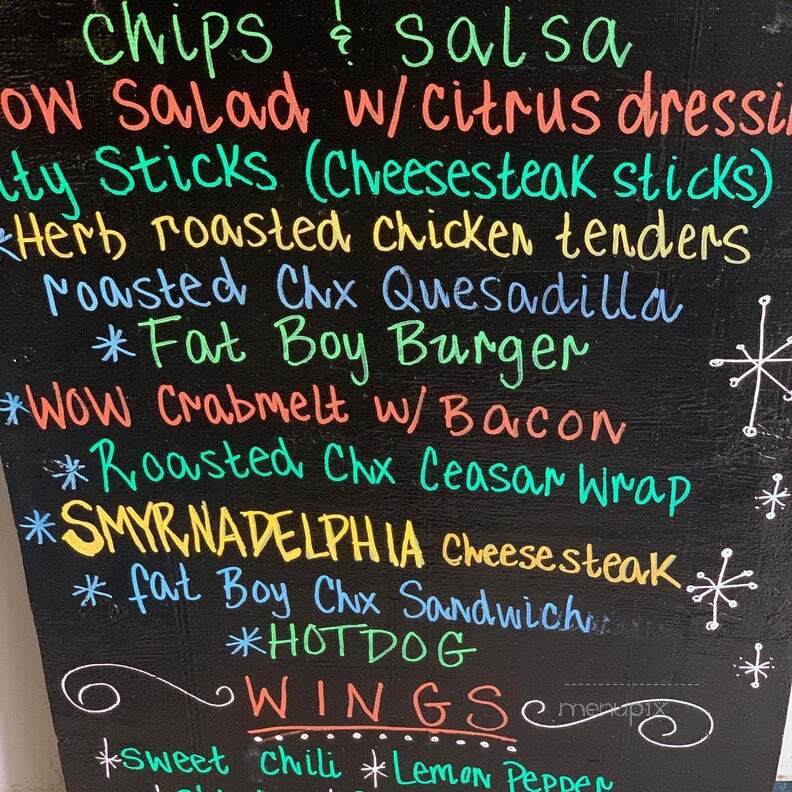 chips & salsa
ow Salad w/citrus dressi
lty Sticks (Cheesesteak sticks)
*Herb roasted chicken tenders
roasted Chx Quesadilla
*Fat Boy Burger
*WOW Crabmelt w/Bacon
*Roasted Chx Ceasar Wrap
*SMYRNADELPHIA Cheesesteak
*fat Boy Chx Sandwich
*HOTDOG
WINGS
menupix
*sweet chili *Lemon Pepper